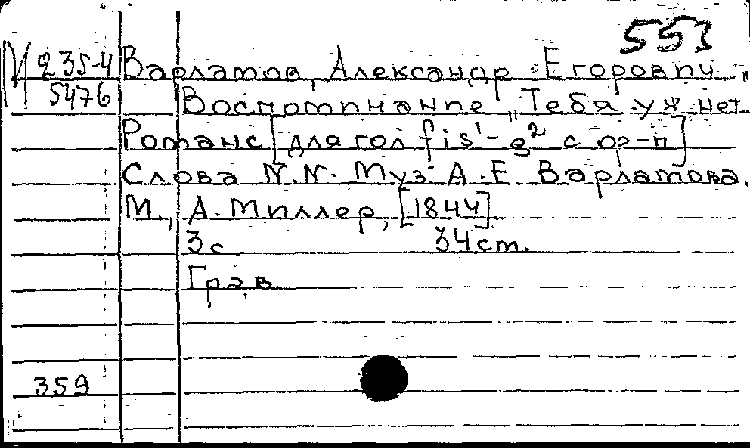 553
V 235-4
5476
Варламов, Александр Егорович.
Воспоминание „Тебя уж нет
Романс [для гол fis¹-g² с ор-п]
Слова N.N. Муз А.Е Варламова.
М., А. Миллер, [1844].
3с 34ст.
Грав
359